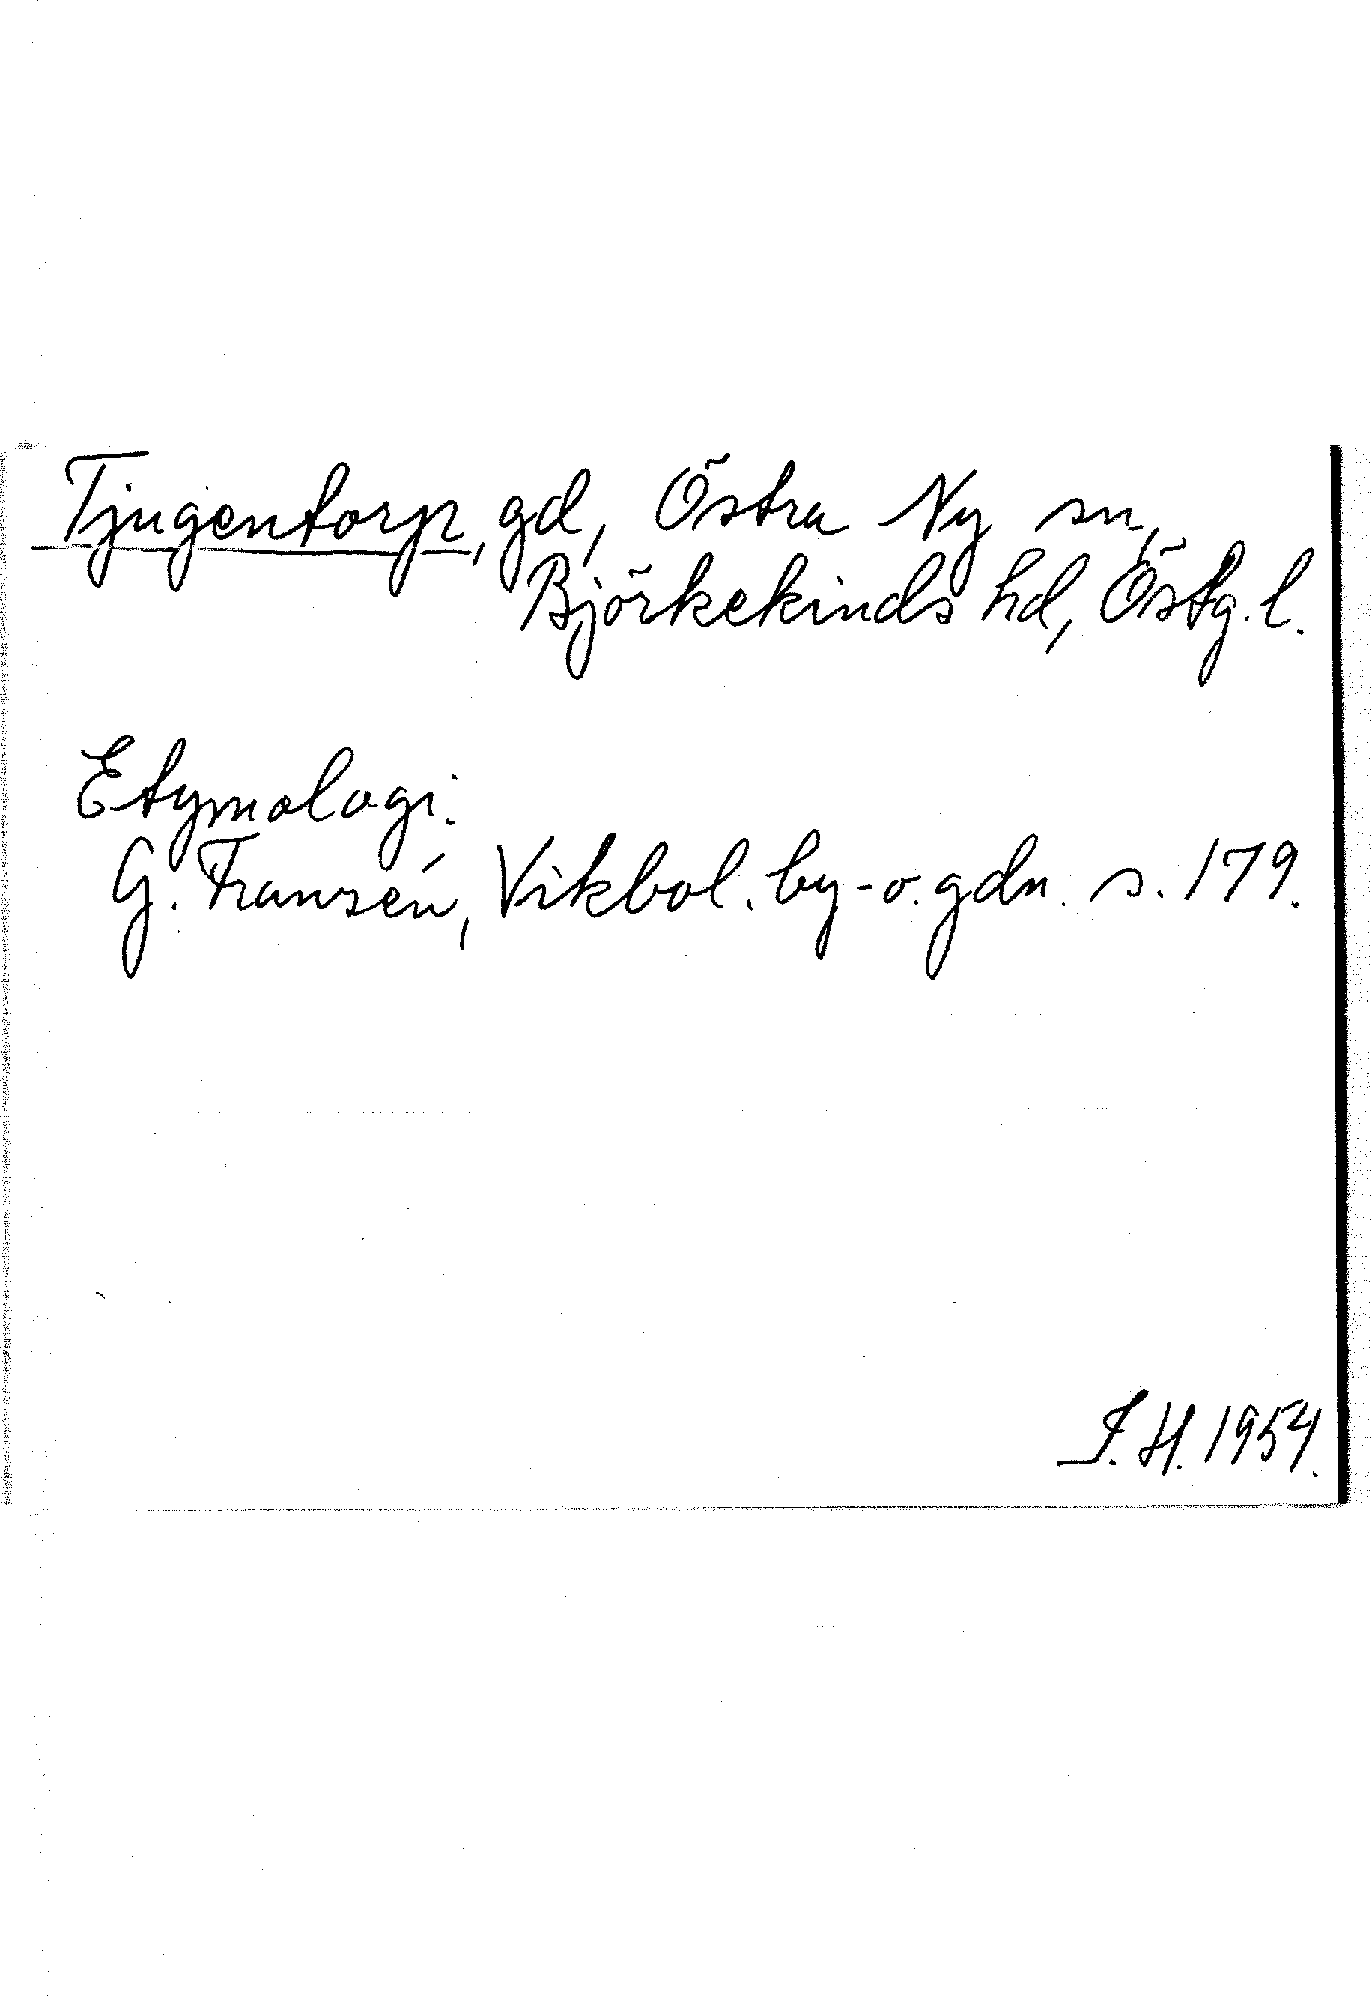 Tjugentorp, gd, Östra Ny sn,
Björkekinds hd, Östg. l.
Etymologi.
G. Franzén, Vikbol. by- o. gdn. s. 179.
I. H. 1954.